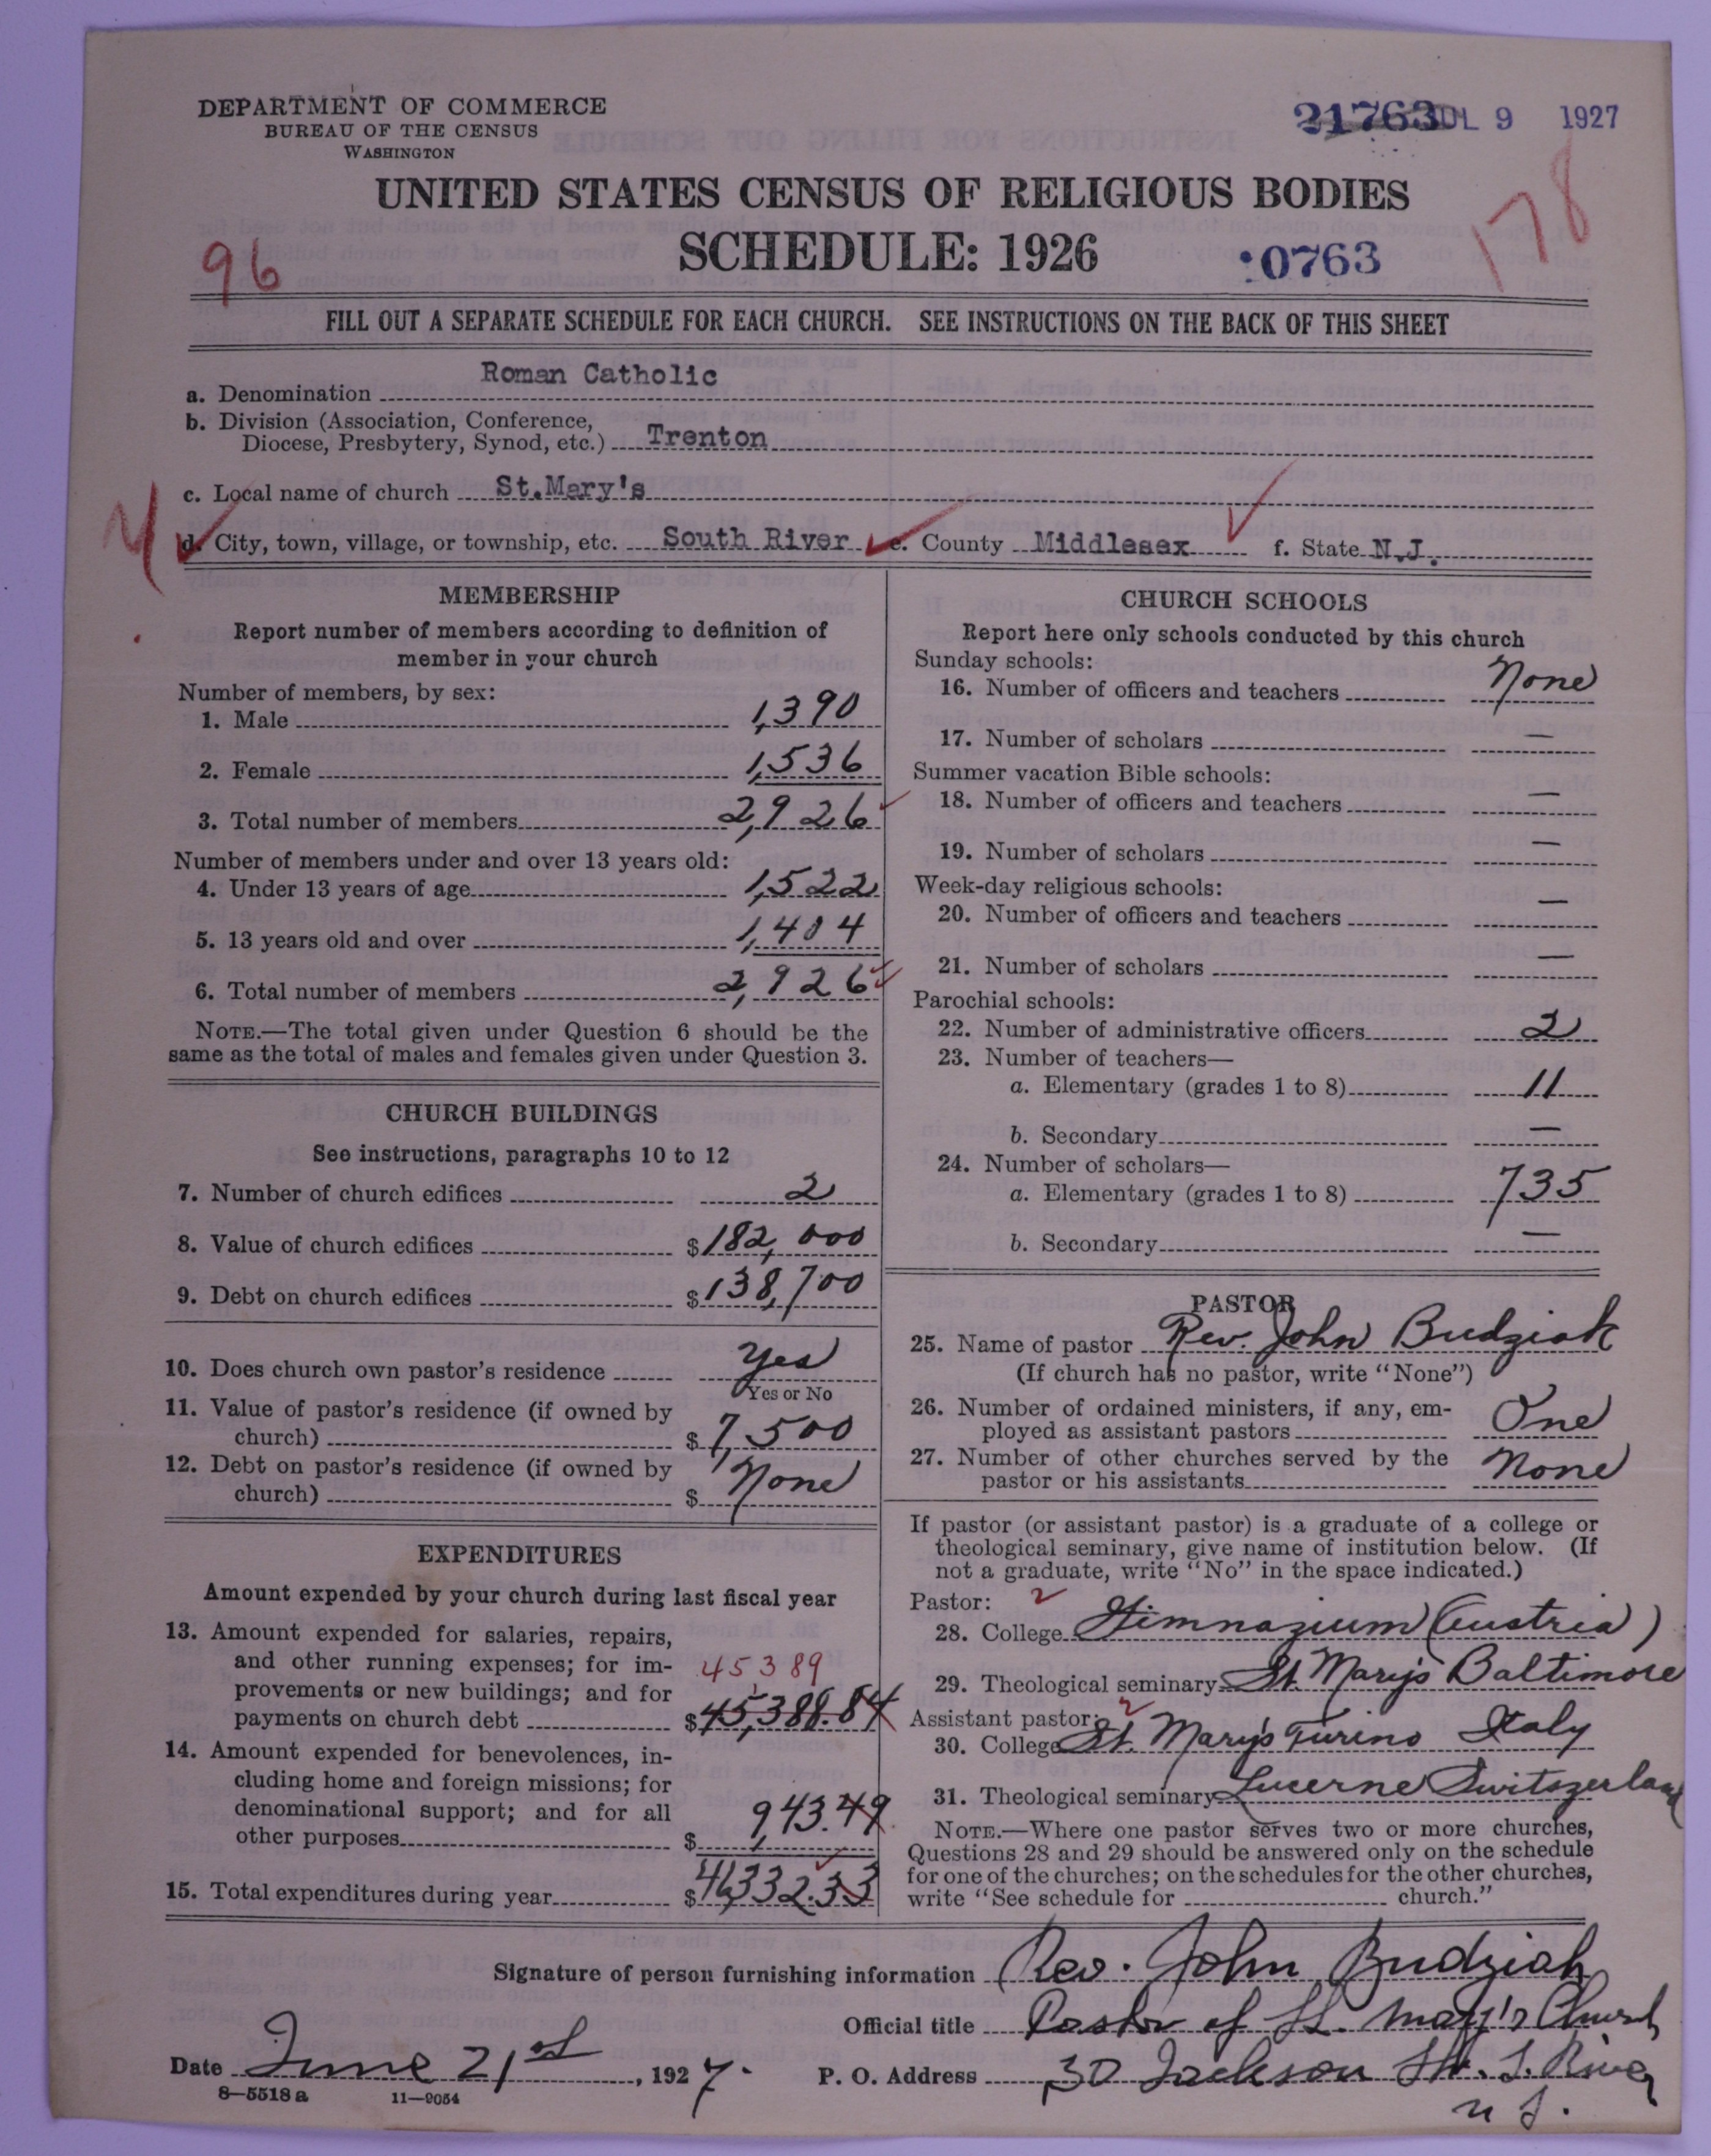 DEPARTMENT OF COMMERCE
BUREAU OF THE CENSUS
WASHINGTON
21763 JUL 9 1927
UNITED STATES CENSUS OF RELIGIOUS BODIES
SCHEDULE: 1926
96
0763
178
FILL OUT A SEPARATE SCHEDULE FOR EACH CHURCH. SEE INSTRUCTIONS ON THE BACK OF THIS SHEET
a. Denomination Roman Catholic
b. Division (Association, Conference,
Diocese, Presbytery, Synod, etc.) Trenton
c. Local name of church St.Mary's
d. City, town, village, or township, etc. South River e. County Middlesex f. State N.J.
MEMBERSHIP
Report number of members according to definition of
member in your church
Number of members, by sex:
1. Male 1,390
2. Female 1,536
3. Total number of members 2,926
Number of members under and over 13 years old:
4. Under 13 years of age 1,522
5. 13 years old and over 1,404
6. Total number of members 2,926
NOTE.—The total given under Question 6 should be the
same as the total of males and females given under Question 3.
CHURCH BUILDINGS
See instructions, paragraphs 10 to 12
7. Number of church edifices 2
8. Value of church edifices $182,000
9. Debt on church edifices $138,700
10. Does church own pastor's residence Yes
Yes or No
11. Value of pastor's residence (if owned by
church) $7,500
12. Debt on pastor's residence (if owned by
church) $None
EXPENDITURES
Amount expended by your church during last fiscal year
13. Amount expended for salaries, repairs,
and other running expenses; for im-
45389
provements or new buildings; and for
payments on church debt $45,388.84
14. Amount expended for benevolences, in-
cluding home and foreign missions; for
denominational support; and for all
other purposes $943.49
15. Total expenditures during year $46,332.33
CHURCH SCHOOLS
Report here only schools conducted by this church
Sunday schools:
16. Number of officers and teachers None
17. Number of scholars —
Summer vacation Bible schools:
18. Number of officers and teachers —
19. Number of scholars —
Week-day religious schools:
20. Number of officers and teachers —
21. Number of scholars —
Parochial schools:
22. Number of administrative officers 2
23. Number of teachers—
a. Elementary (grades 1 to 8) 11
b. Secondary —
24. Number of scholars—
a. Elementary (grades 1 to 8) 735
b. Secondary —
PASTOR
25. Name of pastor Rev. John Budziak
(If church has no pastor, write "None")
26. Number of ordained ministers, if any, em-
ployed as assistant pastors One
27. Number of other churches served by the
pastor or his assistants None
If pastor (or assistant pastor) is a graduate of a college or
theological seminary, give name of institution below. (If
not a graduate, write "No" in the space indicated.)
Pastor: 2
28. College Gimnazium (Austria)
29. Theological seminary St. Mary's Baltimore
Assistant pastor: 2
30. College St. Mary's Turino Italy
31. Theological seminary Lucerne Switszerland
NOTE.—Where one pastor serves two or more churches,
Questions 28 and 29 should be answered only on the schedule
for one of the churches; on the schedules for the other churches,
write "See schedule for church."
Signature of person furnishing information Rev. John Budziak
Official title Pastor of St. Mary's Church
Date June 21st, 1927. P. O. Address 30 Jackson St. S. River
N J.
8—5518 a 11—9054